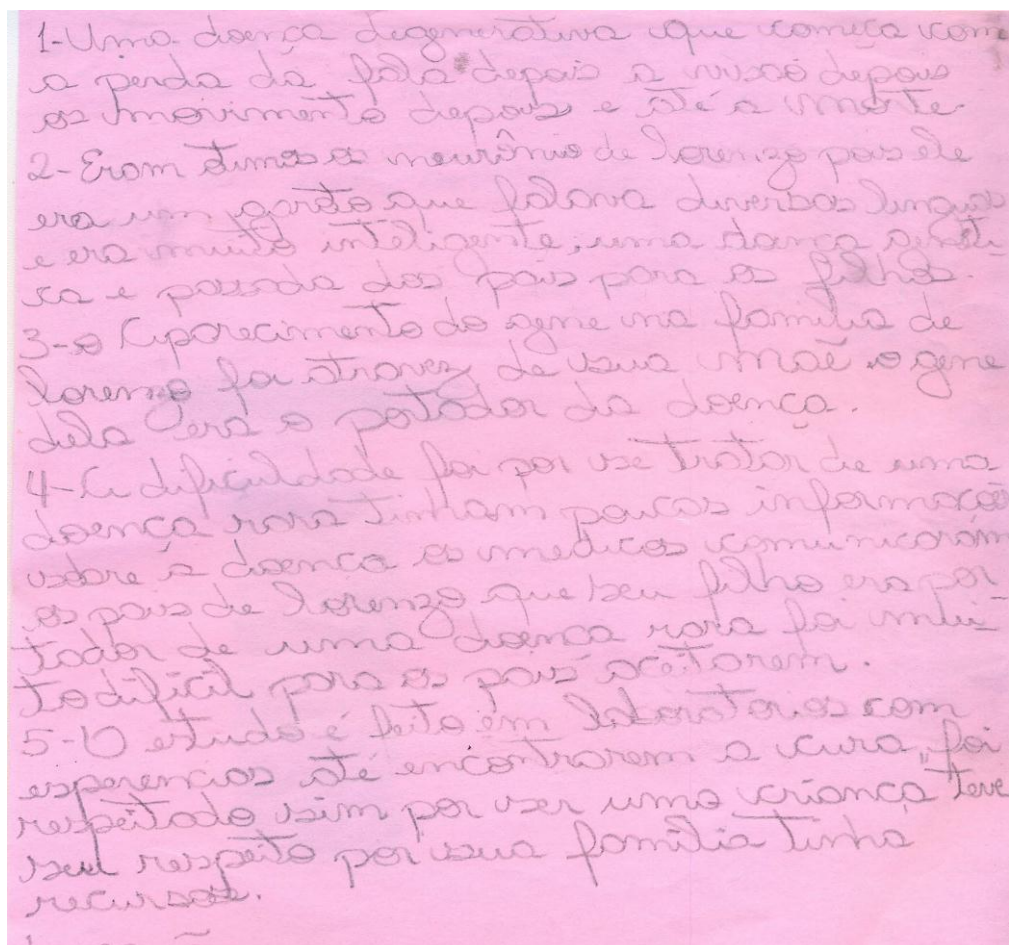 1-Uma doença degenerativa que começa com
a perda da fala depois a visão depois
os movimento depois e até a morte.
2-Eram timos os neurônio de lorenzo pois ele
era um garoto que falava diversas linguas
e era muito inteligente, uma doença genéti
ca e passada dos pais para os filhos.
3-o Aparecimento do gene na família de
lorenzo foi atravez de sua mãe o gene
dela era o portador da doença.
4-A dificuldade foi por se tratar de uma
doença rara tinham poucas informação
sobre a doença os medicos comunicaram
os pais de lorenzo que seu filho era por-
tador de uma doença rara foi mui-
to difícil para os pais aceitarem.
5-O estudo é feito em laboratorios com
esperencias até encontrarem a cura, foi
respeitado sim por ser uma criança "teve
seu respeito por sua família tinha
recursos.